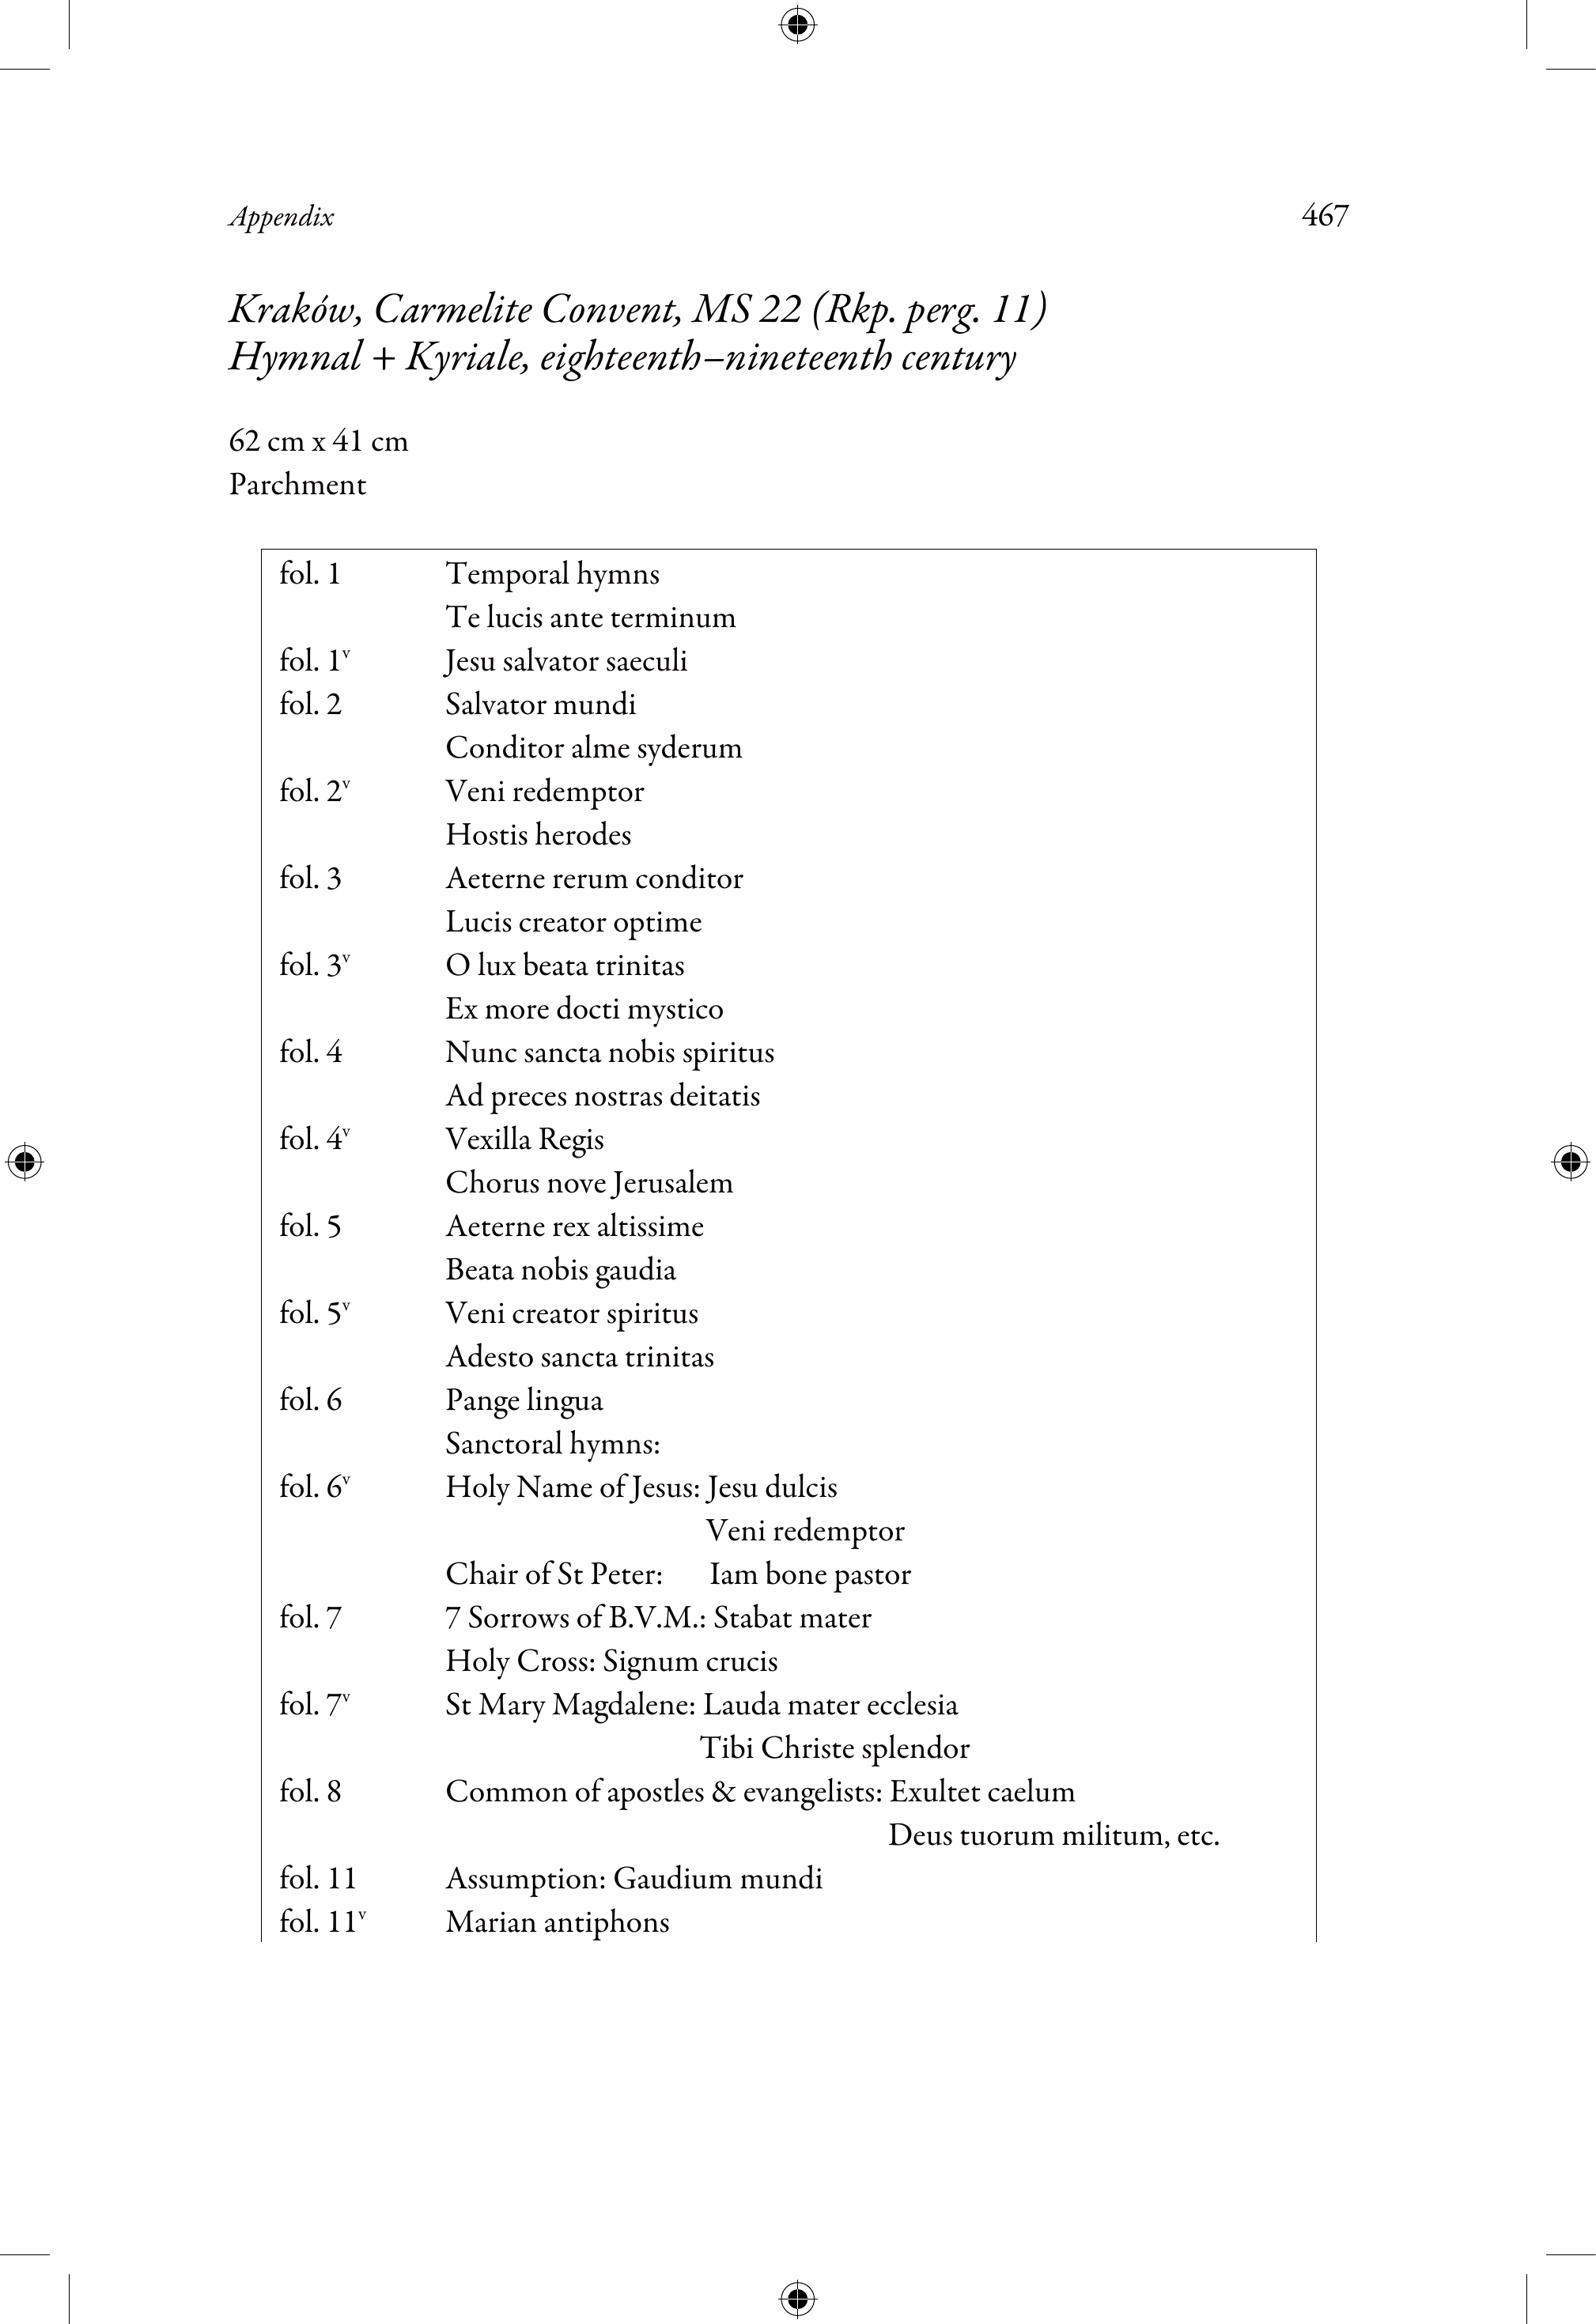 Appendix 467
Kraków, Carmelite Convent, MS 22 (Rkp. perg. 11)
Hymnal + Kyriale, eighteenth–nineteenth century
62 cm x 41 cm
Parchment
fol. 1 Temporal hymns
Te lucis ante terminum
fol. 1ᵛ Jesu salvator saeculi
fol. 2 Salvator mundi
Conditor alme syderum
fol. 2ᵛ Veni redemptor
Hostis herodes
fol. 3 Aeterne rerum conditor
Lucis creator optime
fol. 3ᵛ O lux beata trinitas
Ex more docti mystico
fol. 4 Nunc sancta nobis spiritus
Ad preces nostras deitatis
fol. 4ᵛ Vexilla Regis
Chorus nove Jerusalem
fol. 5 Aeterne rex altissime
Beata nobis gaudia
fol. 5ᵛ Veni creator spiritus
Adesto sancta trinitas
fol. 6 Pange lingua
Sanctoral hymns:
fol. 6ᵛ Holy Name of Jesus: Jesu dulcis
Veni redemptor
Chair of St Peter: Iam bone pastor
fol. 7 7 Sorrows of B.V.M.: Stabat mater
Holy Cross: Signum crucis
fol. 7ᵛ St Mary Magdalene: Lauda mater ecclesia
Tibi Christe splendor
fol. 8 Common of apostles & evangelists: Exultet caelum
Deus tuorum militum, etc.
fol. 11 Assumption: Gaudium mundi
fol. 11ᵛ Marian antiphons